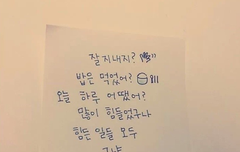 잘 지내지?
밥은 먹었어?
오늘 하루 어땠어?
많이 힘들었구나
힘든 일들 모두
그냥